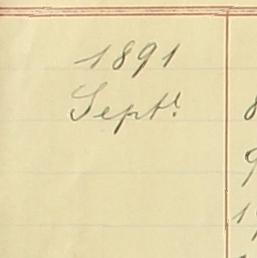 1891
Septr.
8
9